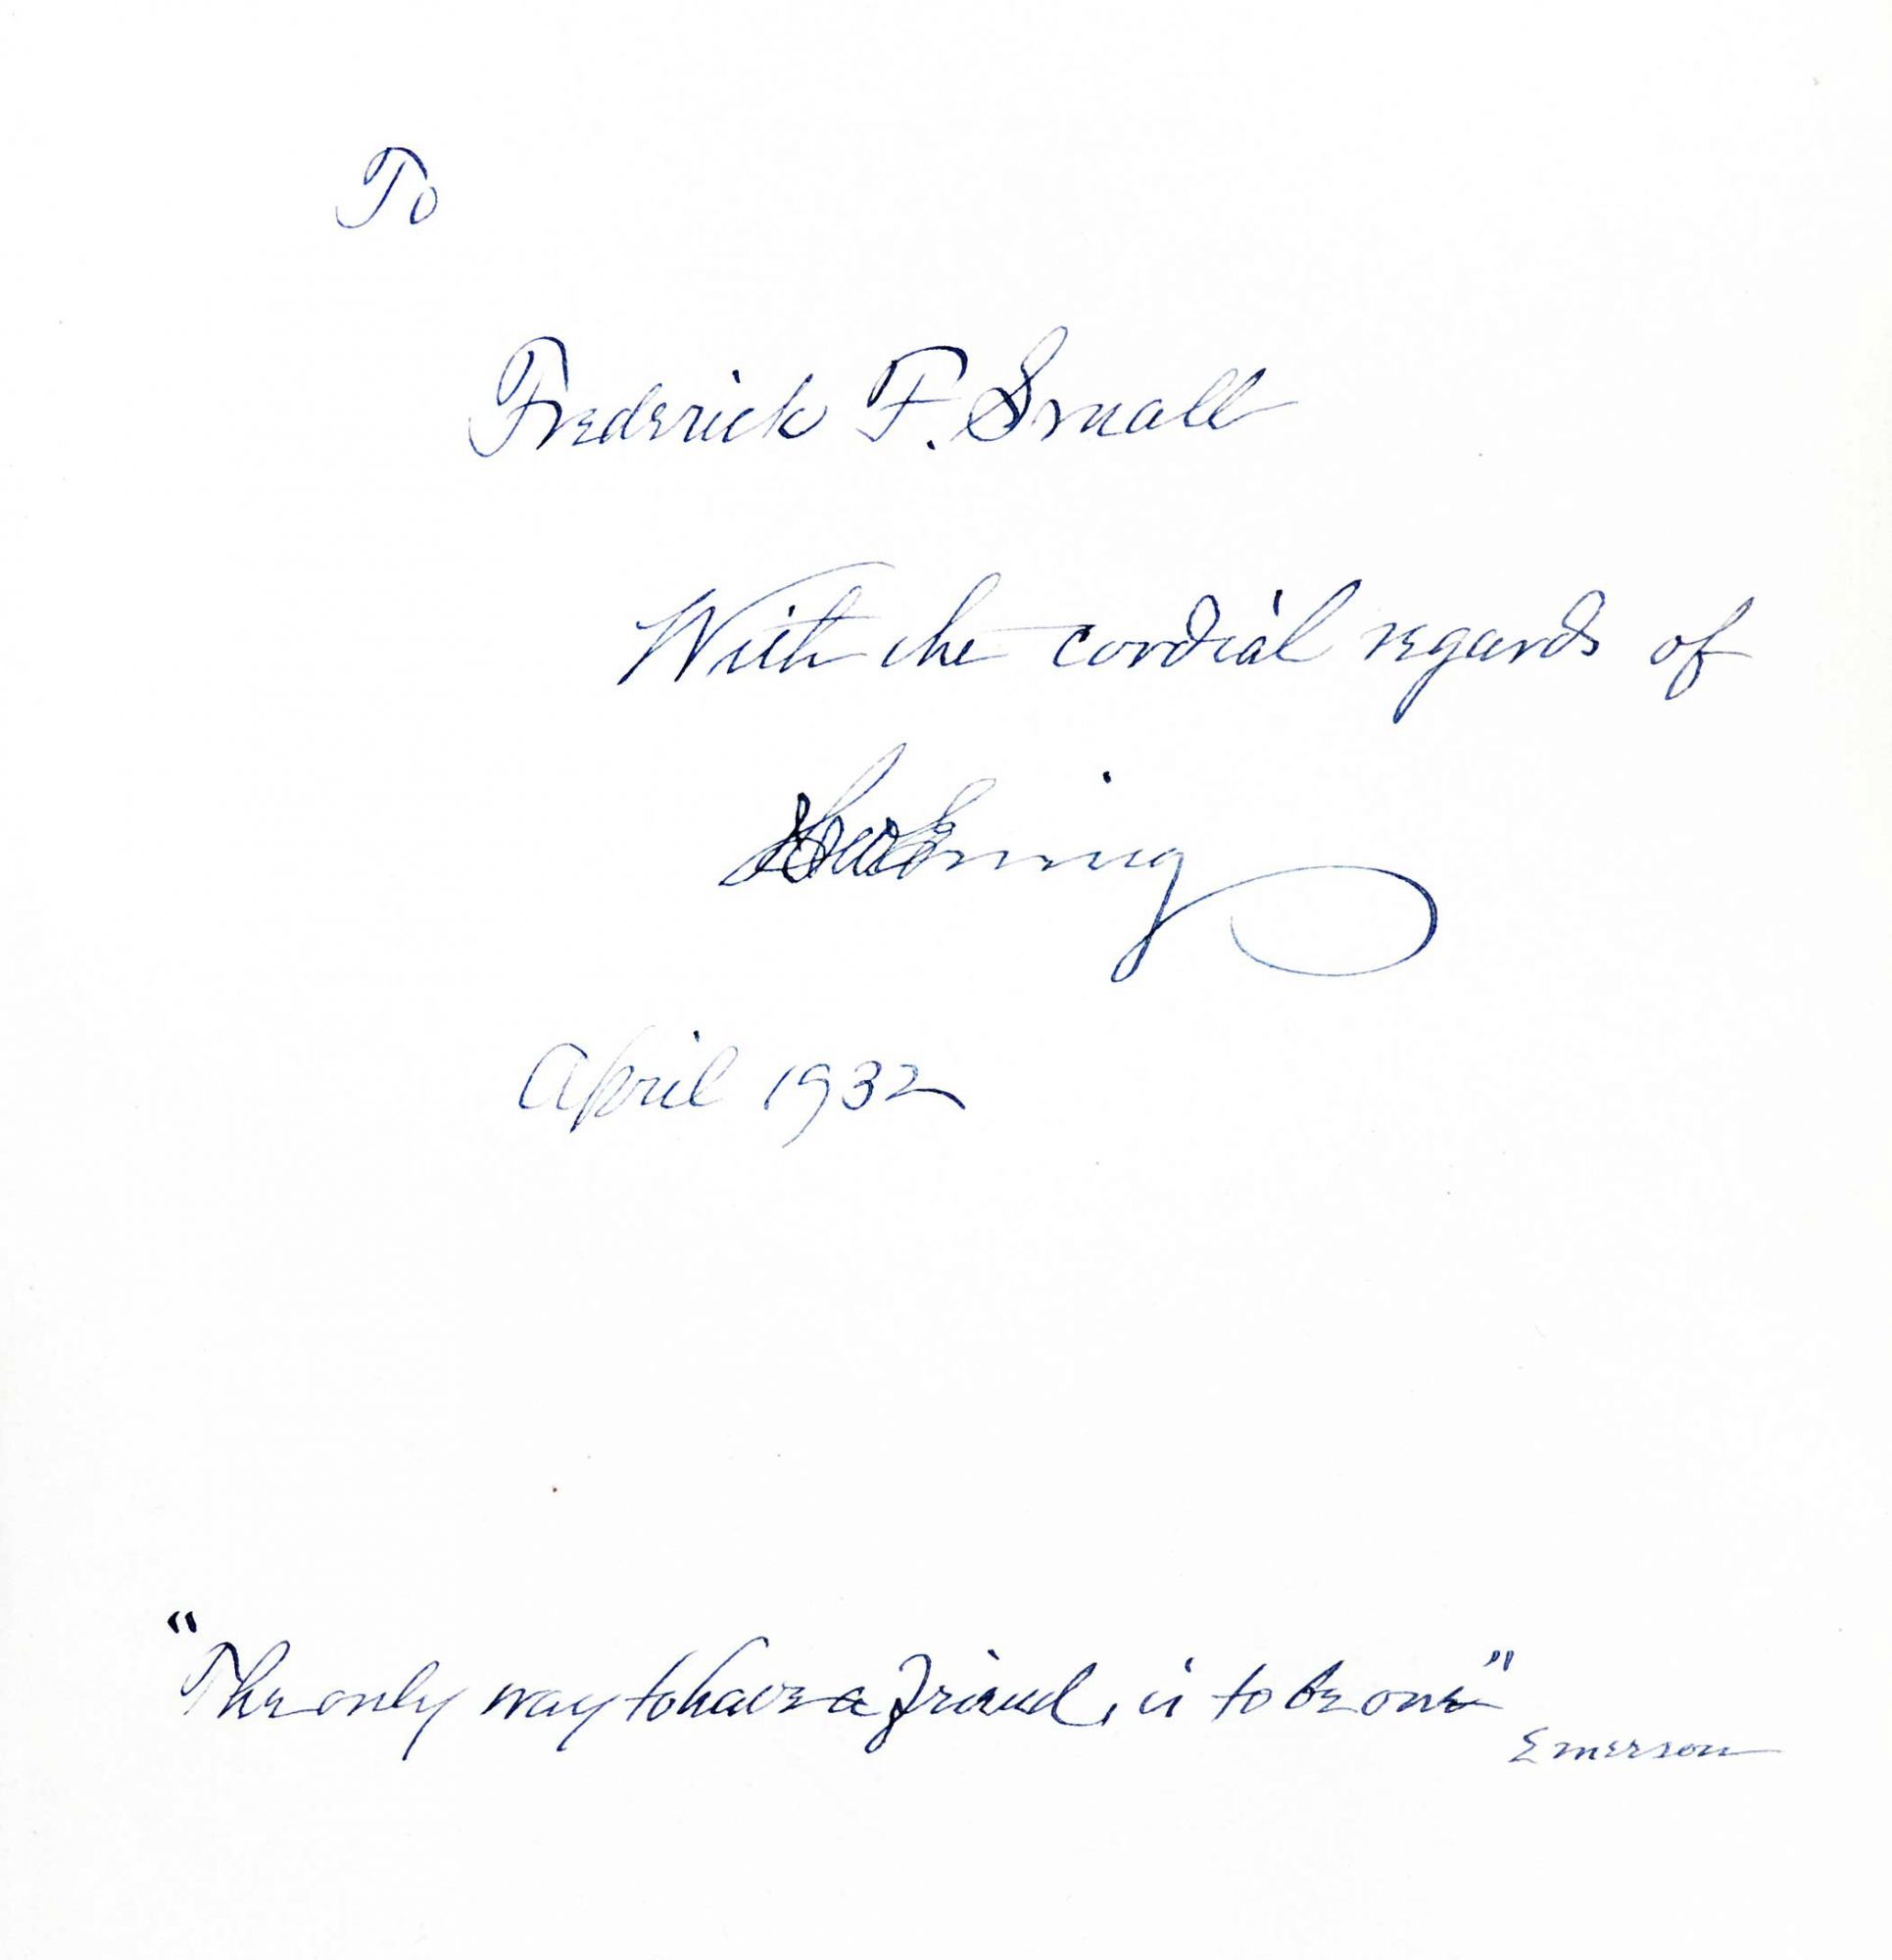 To
Frederick F. Small
With the cordial regards of
April 1932
"The only way to have a friend, is to be one"
Emerson